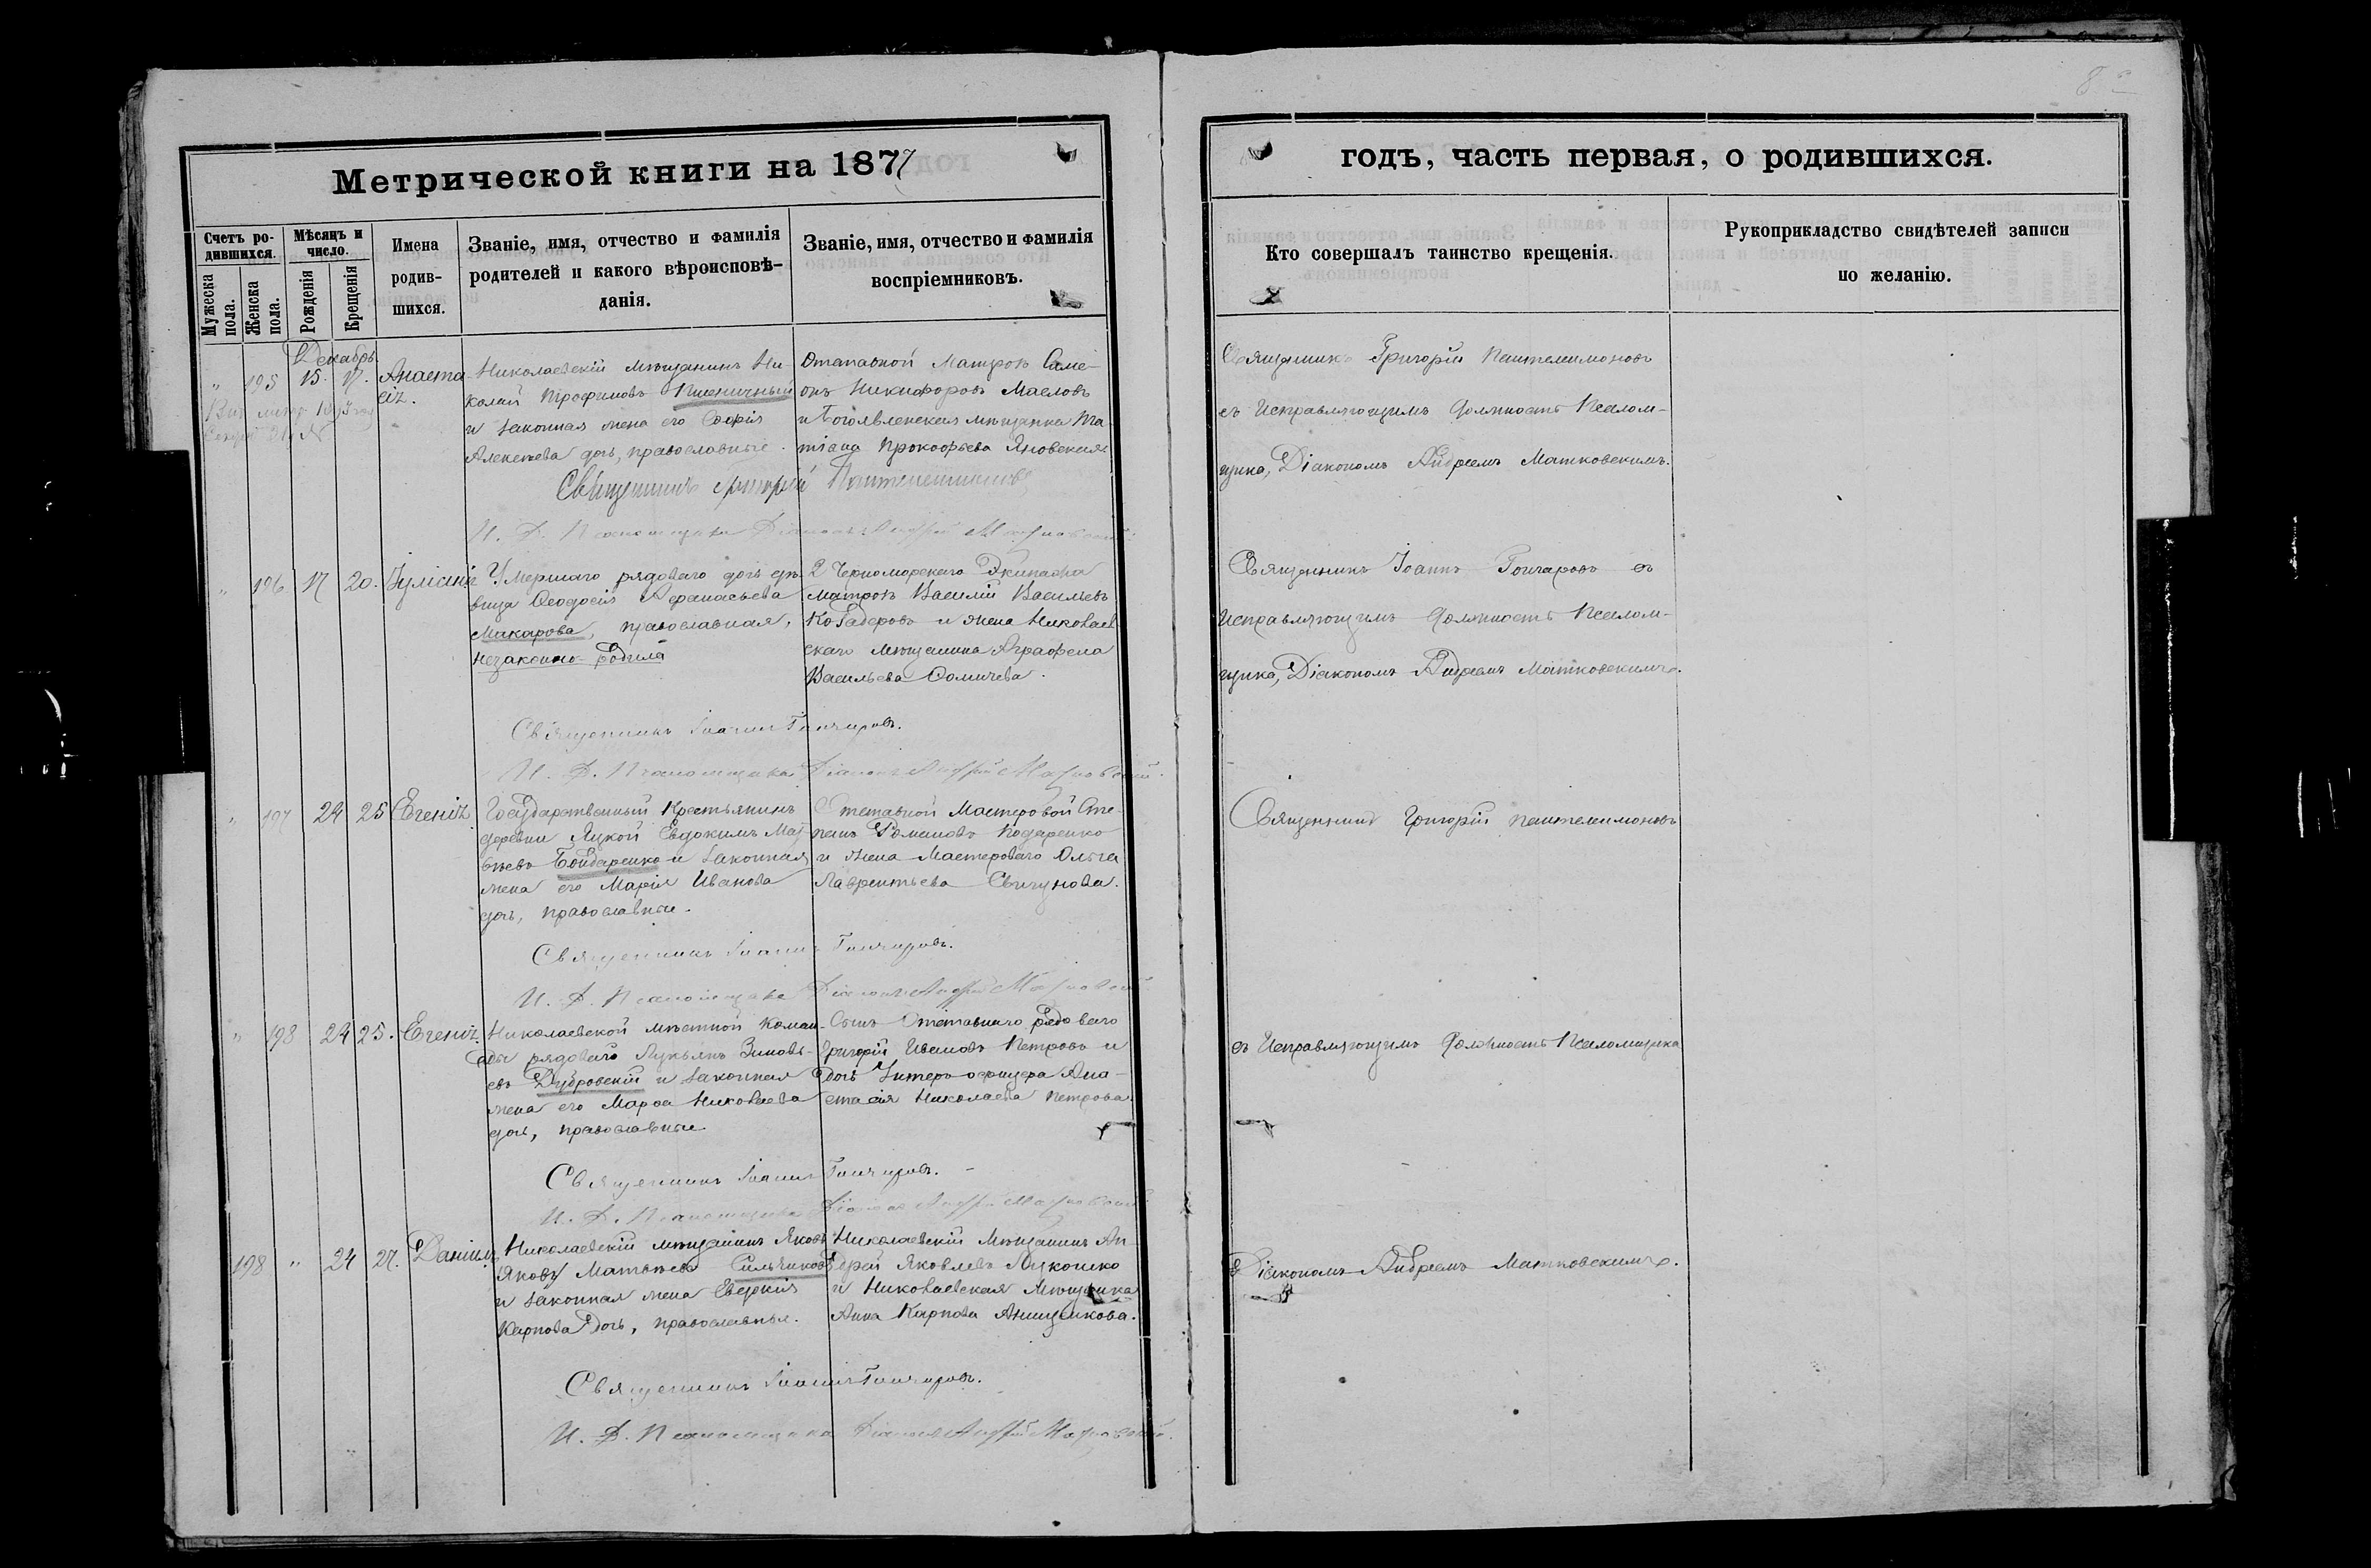 8
Метрической книги на 1877
Счетъ ро-
дившихся.
Мужеска
пола.
Женска
пола.
Мѣсяцъ и
число.
Рожденія
Крещенія
Имена
родив-
шихся.
Званіе, имя, отчество и фамилія
родителей и какого вѣроисповѣ-
данія.
Званіе, имя, отчество и фамилія
воспріемниковъ.
Декабрь
" 195 15. 17. Анаста-
сія.
Николаевскій мѣщанинъ Ни-
колай Трофимовъ Пшеничный
и законная жена его Софія
Алексѣева дочь, православные.
Отставной Матросъ Симе-
онъ Никифоровъ Масловъ
и Богоявленская мѣщанка Та-
тіана Прокофьева Яновская.
Священникъ Григорій Пантелеимоновъ
И. Д. Псаломщика Діаконъ Андрей Матковскій
" 196 17 20. Іуліанія
Умершаго рядоваго дочь дѣ-
вица Ѳеодосія Аѳанасьева
Макарова, православная,
незаконно-родила
2 Черноморскаго Экипажа
Матросъ Василій Васильевъ
и жена Николаев
скаго мѣщанина Аграфена
Васильева Сомичева.
Священникъ Іоаннъ Гончаровъ.
И. Д. Псаломщика Діаконъ Андрей Матковскій.
" 197 24 25 Евгенія
Государственный Крестьянинъ
деревни Луцкой Евдокимъ Мат-
вѣевъ Бондаренко и законная
жена его Марія Иванова
дочь, православные.
Отставной Мастеровой Сте-
панъ Романовъ
и жена Мастероваго Ольга
Лаврентьева Свигунова.
Священникъ Іоаннъ Гончаровъ.
И. Д. Псаломщика Діаконъ Андрей Матковскій
" 198 24 25. Евгенія.
Николаевской мѣстной Коман-
ды рядовой Лукьянъ Зиновь-
евъ Дубровскій и законная
жена его Марѳа Николаева
дочь, православные.
Сынъ Отставнаго рядоваго
Григорій Ивановъ Петровъ и
дочь Унтеръ-офицера Ана-
стасія Николаева Петрова.
Священникъ Іоаннъ Гончаровъ.
И. Д. Псаломщика Діаконъ Андрей Матковскій
198 " 24 27. Даніилъ
Николаевскій мѣщанинъ Яковъ
Яковъ Матвѣевъ Сильчиковъ
и законная жена Евдокія
Карпова дочь, православные.
Николаевскій Мѣщанинъ Ан-
дрей Яковлевъ Лукошко
и Николаевская Мѣщанка
Анна Карпова Анищенкова.
Священникъ Іоаннъ Гончаровъ.
И. Д. Псаломщика Діаконъ Андрей Матковскій.
годъ, часть первая, о родившихся.
Кто совершалъ таинство крещенія.
Рукоприкладство свидѣтелей записи
по желанію.
Священникъ Григорій Пантелеимоновъ
съ Исправляющимъ должность Псалом-
щика, Діакономъ Андреемъ Матковскимъ.
Священникъ Іоаннъ Гончаровъ съ
Исправляющимъ должность Псалом-
щика, Діакономъ Андреемъ Матковскимъ.
Священникъ Григорій Пантелеимоновъ
съ Исправляющимъ должность Псаломщика
Діакономъ Андреемъ Матковскимъ.